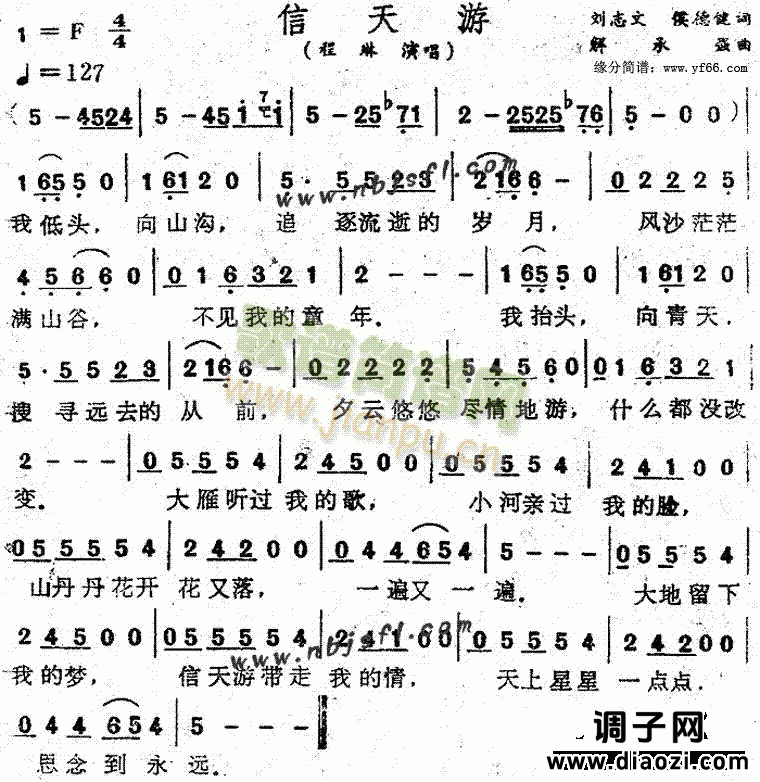 信天游
1=F 4/4
(程琳演唱)
刘志文 侯德健词
解承强曲
♩=127
缘分简谱：www.yf66.com
(5-4524|5-45i7i|5-25♭71|2-2525♭76|5-00)|
165 50|161 20|5. 5523|2166-|02225|
我低头，向山沟，追逐流逝的岁月，风沙茫茫
4 5660|016321|2---|165 50|161 20|
满山谷，不见我的童年。我抬头，向青天，
5.5523|2166-|02222|54560|016321|
搜寻远去的从前，夕云悠悠尽情地游，什么都没改
2---|05554|24500|05554|24100|
变。大雁听过我的歌，小河亲过我的脸，
055554|24200|044654|5---|05554|
山丹丹花开花又落，一遍又一遍。大地留下
24500|055554|24100|05554|24200|
我的梦，信天游带走我的情，天上星星一点点，
044654|5---‖
思念到永远。
www.nbjsfl.com
歌谱简谱网
www.jianpu.cn
www.nbjsfl.com
调子网
www.diaozi.com